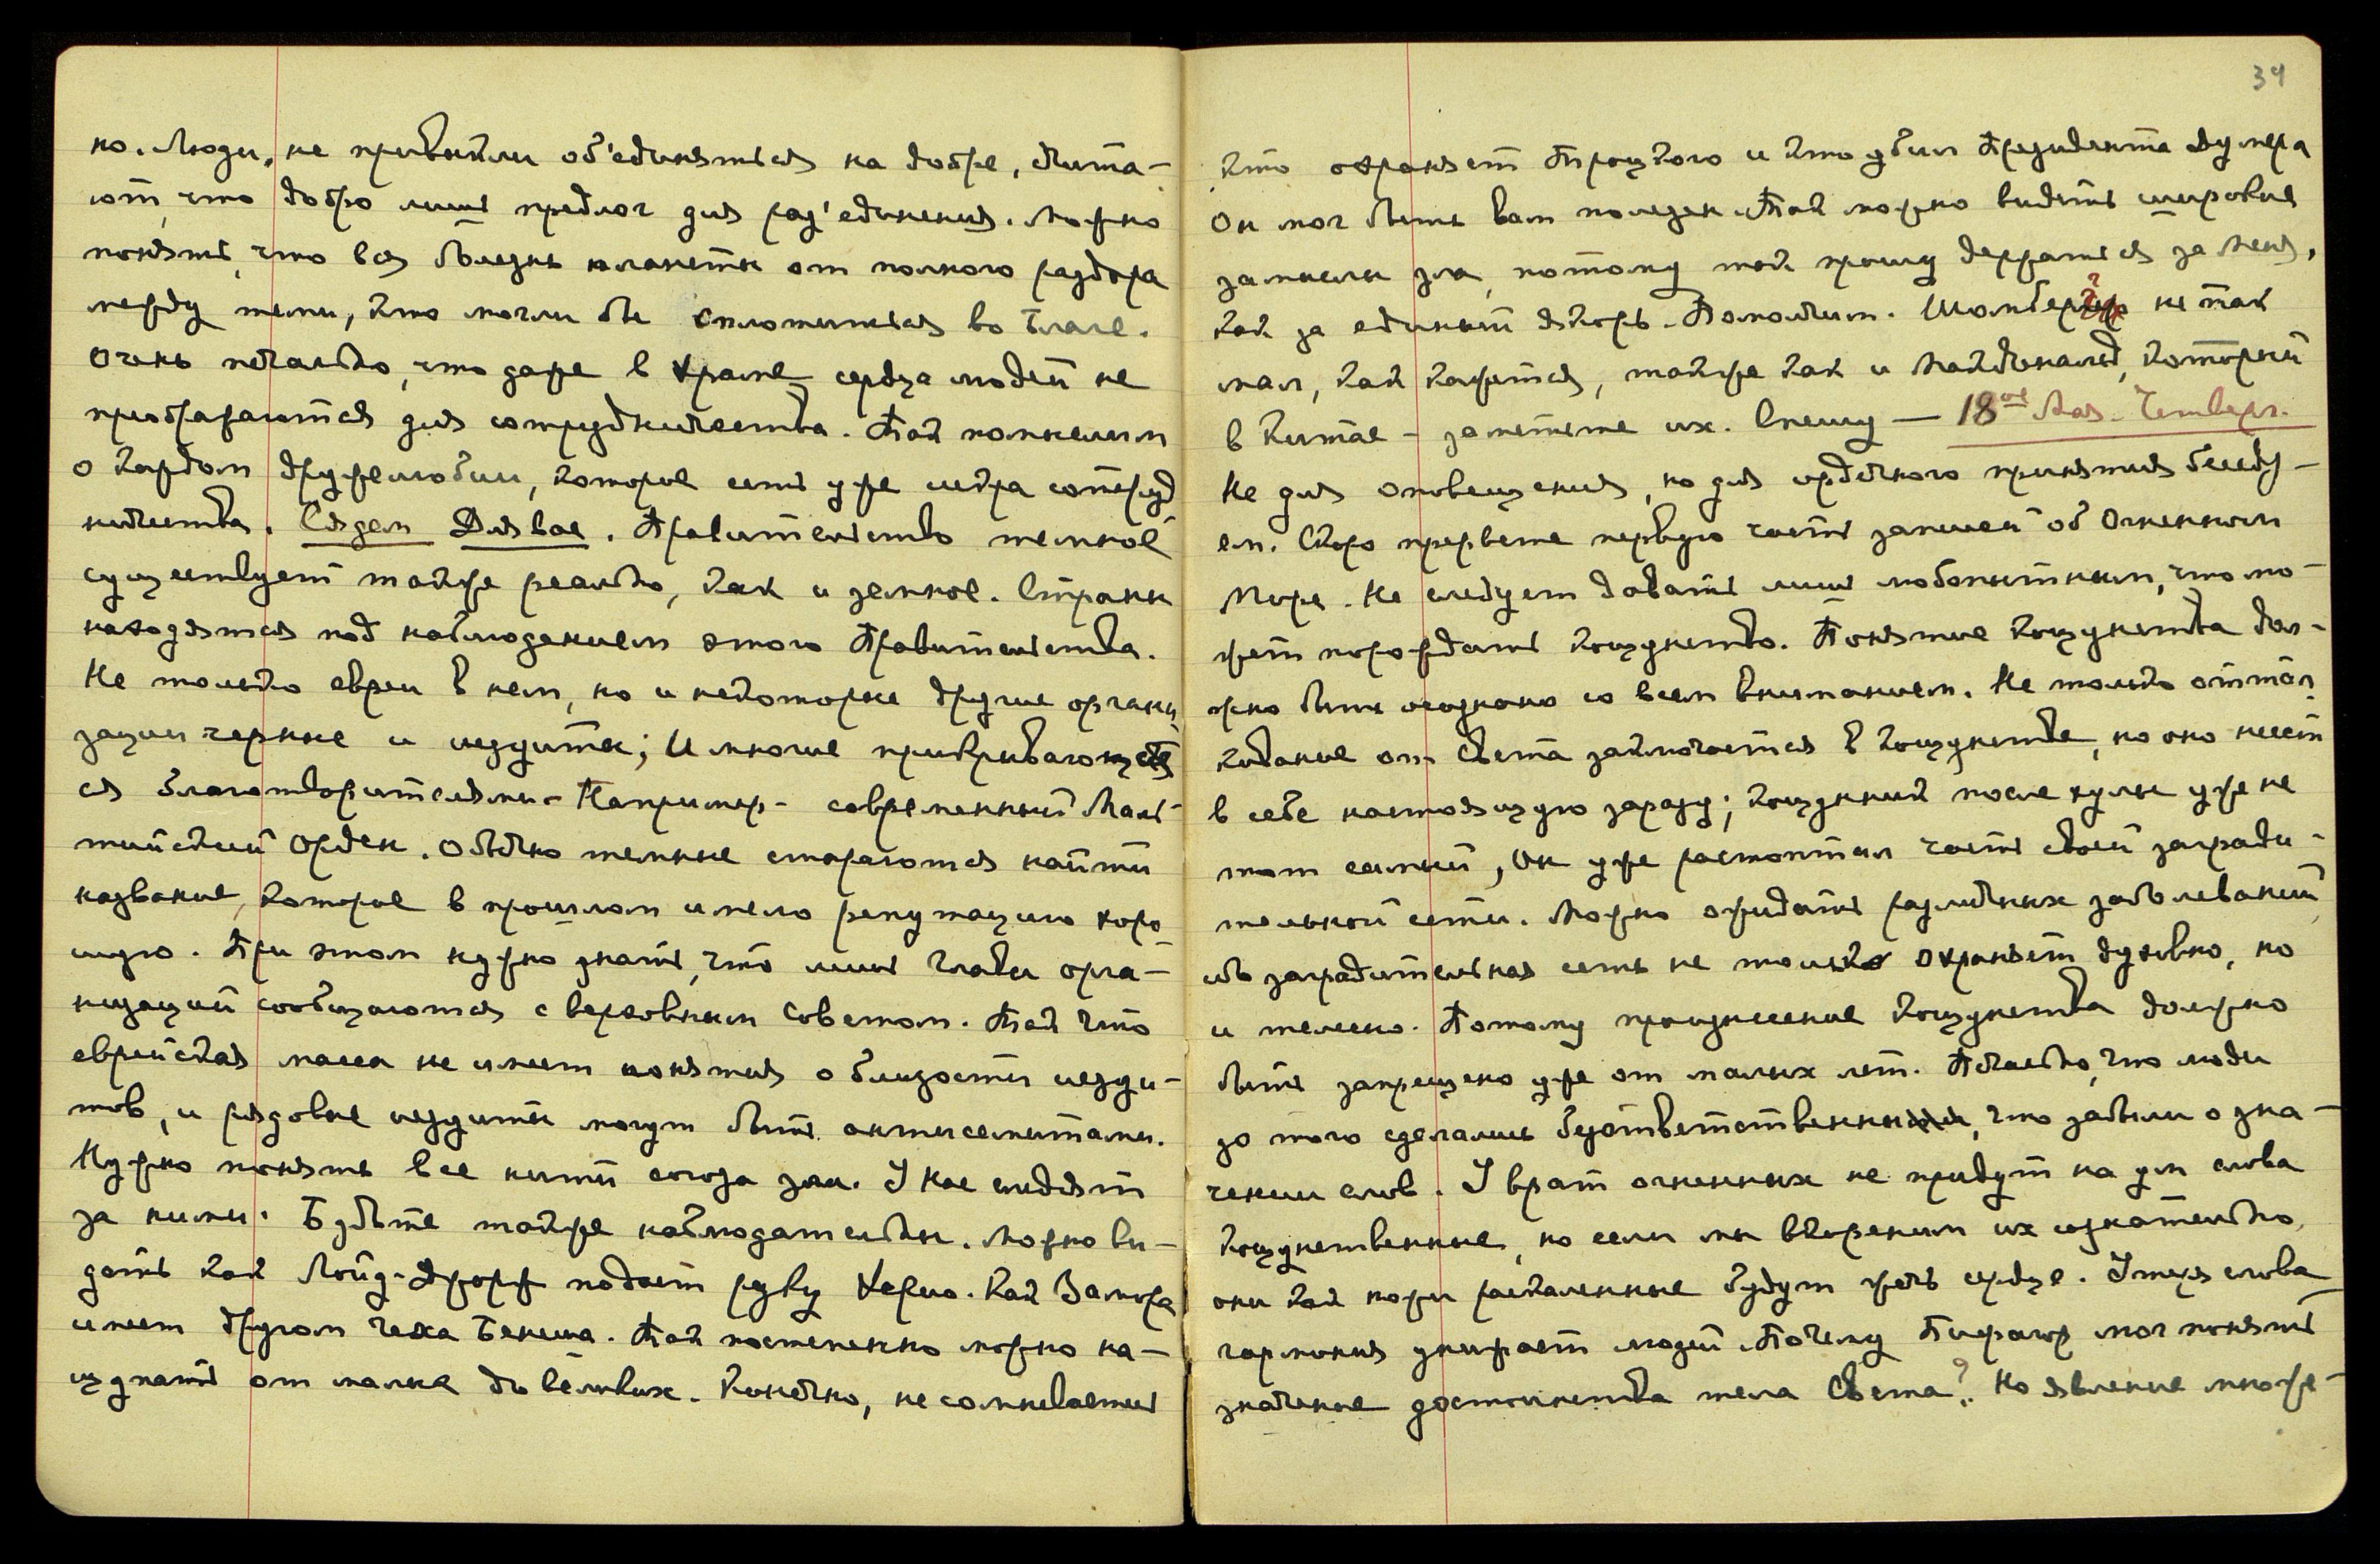 но. Люди, не привыкли об'единяться на добре, счита-
ют, что добро лишь предлог для раз'единения. Можно
понять, что вся болезнь планеты от полного раздора
между теми, кто могли бы сплотиться во благе.
Очень печально, что даже в храме сердца людей не
преображаются для сотрудничества. Так помыслим
о каждом дружелюбии, которое есть уже искра сотруд
ничества. Сядем Для вас. Правительство темное
существует также реально, как и земное. Страны
находятся под наблюдением этого Правительства.
Не только евреи в нем, но и некоторые другие органи
зации черные и иезуиты; И многие прикрывающие
ся благотворителями - Например - современный Маль-
тийский Орден. Обычно темные стараются найти
название, которое в прошлом имело репутацию хоро
шую. При этом нужно знать, что лишь главы орга-
низаций сообщаются с верховным Советом. Так что
еврейская масса не имеет понятия о близости иезуи-
тов, и рядовые иезуиты могут быть антисемитами.
Нужно понять все нити союза зла. У Нас следят
за ними. Будьте также наблюдательны. Можно ви-
деть как Лойд-Джорж подает руку Херио. Как Замора
имеет другом чеха Бенеша. Так постепенно можно на-
щупать от малых до великих. Конечно, не сомневаетесь
34
кто охраняет Троцкого и кто убил Президента Думера
Он мог быть вам полезен. Так можно видеть широкие
замыслы зла, потому так прошу держаться за Меня,
как за единый якорь. Помолчим. не так
мал, как кажется, также как и Макдональд, который
в Китае - заметьте их. Спешу — 18ое Мая. Четверг.
Не для оповещения, но для сердечного принятия беседу-
ем. Скоро прервете первую часть записей об Огненном
Мире. Не следует давать лишь любопытным, что мо-
жет порождать кощунство. Понятие кощунства дол-
жно быть осознано со всем вниманием. Не только оттал
кивание от Света заключается в кощунстве, но оно несет
в себе настоящую заразу; кощунник после хулы уже не
тот самый, он уже растоптал часть своей загради-
тельной сети. Можно ожидать различных заболеваний,
ибо заградительная сеть не только охраняет духовно, но
и телесно. Потому произнесение кощунства должно
быть запрещено уже от малых лет. Печально, что люди
до того сделались безответственны, что забыли о зна-
чении слов. У врат огненных не придут на ум слова
кощунственные, но если мы вкореним их сознательно,
они как ножи раскаленные будут жечь сердце. Утеря слова
гармония унижает людей. Почему Пифагор мог понять
значение достоинства тела Света? Но явление множе-